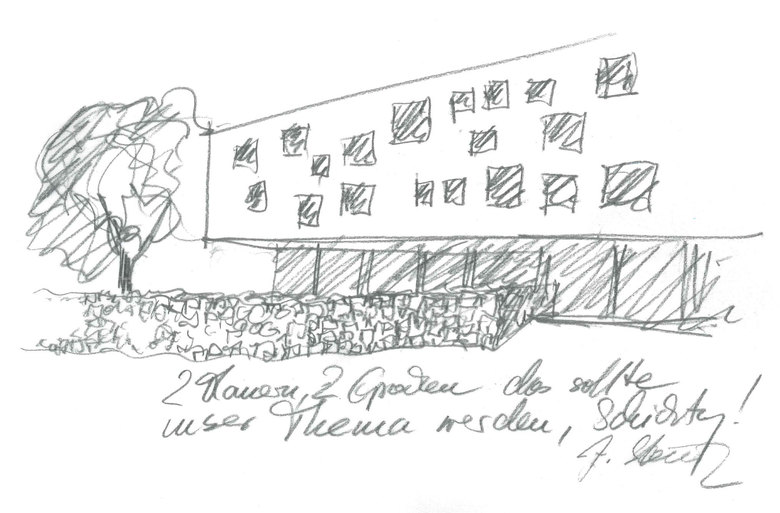 2 Mauern, 2 Graden das sollte
unser Thema werden,
J.